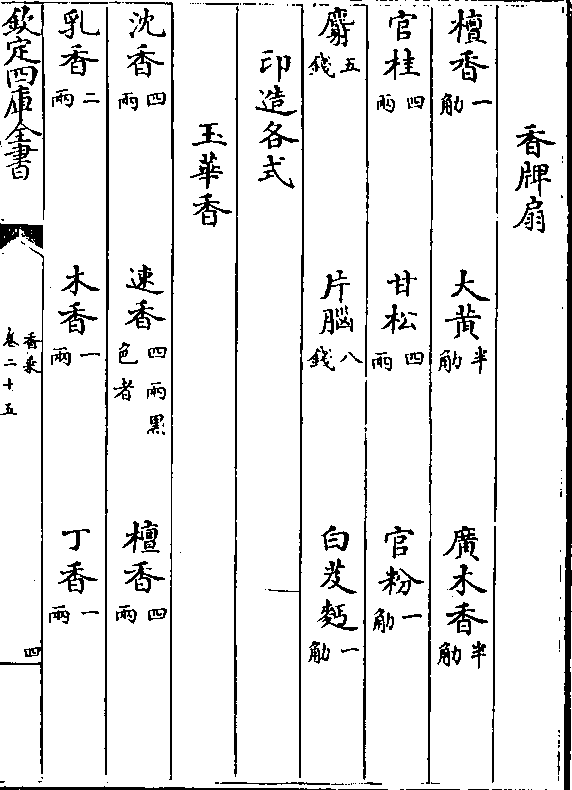 香牌扇
檀香一觔　大黄半觔　廣木香半觔
官桂四兩　甘松四兩　官粉一觔
麝五錢　片腦八錢　白芨麪一觔
印造各式
玉華香
沈香四兩　速香四兩黑色者　檀香四兩
乳香二兩　木香一兩　丁香一兩
欽定四庫全書　香乘卷二十五　四